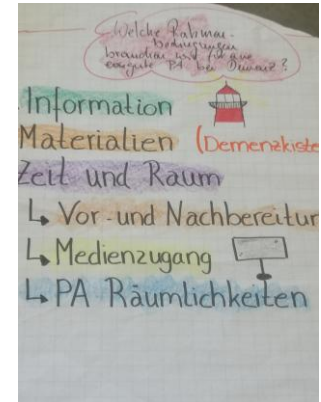 Welche Rahmen-
bedingungen
brauchen wir für eine
gute PA bei Demenz?
Information
Materialien (Demenzkiste
Zeit und Raum
↳ Vor- und Nachbereitun
↳ Medienzugang
↳ PA Räumlichkeiten